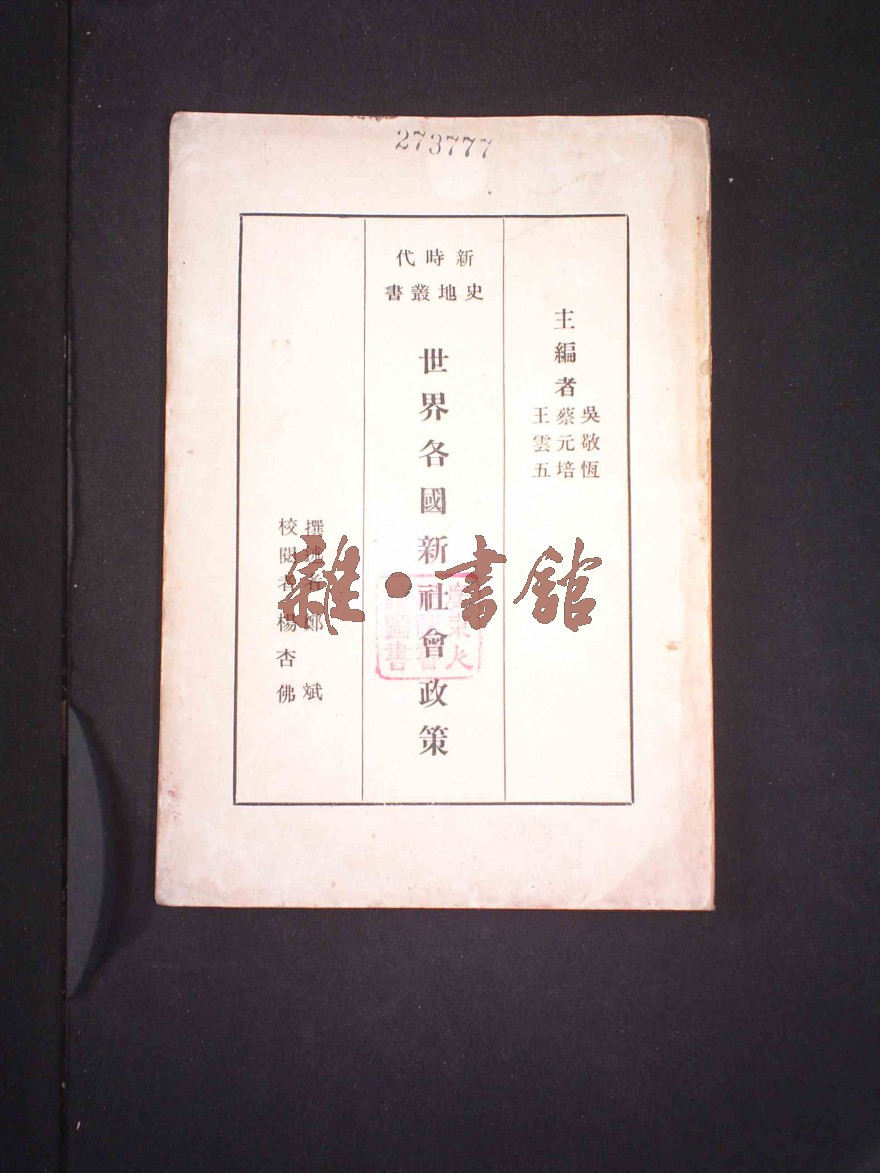 273777
主編者
吳敬恆
蔡元培
王雲五
新時代
史地叢書
世界各國新社會政策
撰述者 鄭斌
校閱者 楊杏佛
雜·書館